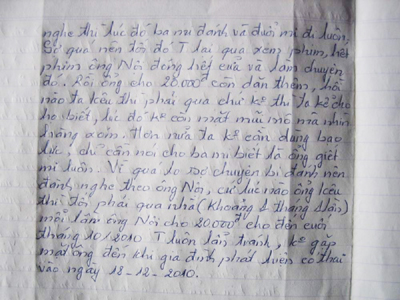 nghe thì lúc đó ba mi đánh và đuổi mi đi luôn.
Sợ quá nên tối đó T lại qua xem phim, hết
phim ông Nội đóng hết cửa và làm chuyện
đó. Rồi ông cho 20.000đ còn dặn thêm, hồi
nào ta kêu thì phải qua chứ kº thì ta kº cho
họ biết, lúc đó kº còn mặt mũi mô mà nhìn
tràng xóm. Hơn nữa ta kº cần dùng bạo
lực, chỉ cần nói cho ba mi biết là ông giết
mi luôn. Vì quá lo sợ chuyện bị đánh nên
đành nghe theo ông Nội, cứ lúc nào ông kêu
thì tôi phải qua nhà (khoảng 2 tháng 3 lần)
mỗi lần ông Nội cho 20000đ cho đến cuối
tháng 10/2010 T luôn lẩn tránh, kº gặp
mặt ông đến khi gia đình phát hiện có thai
vào ngày 18-12-2010.